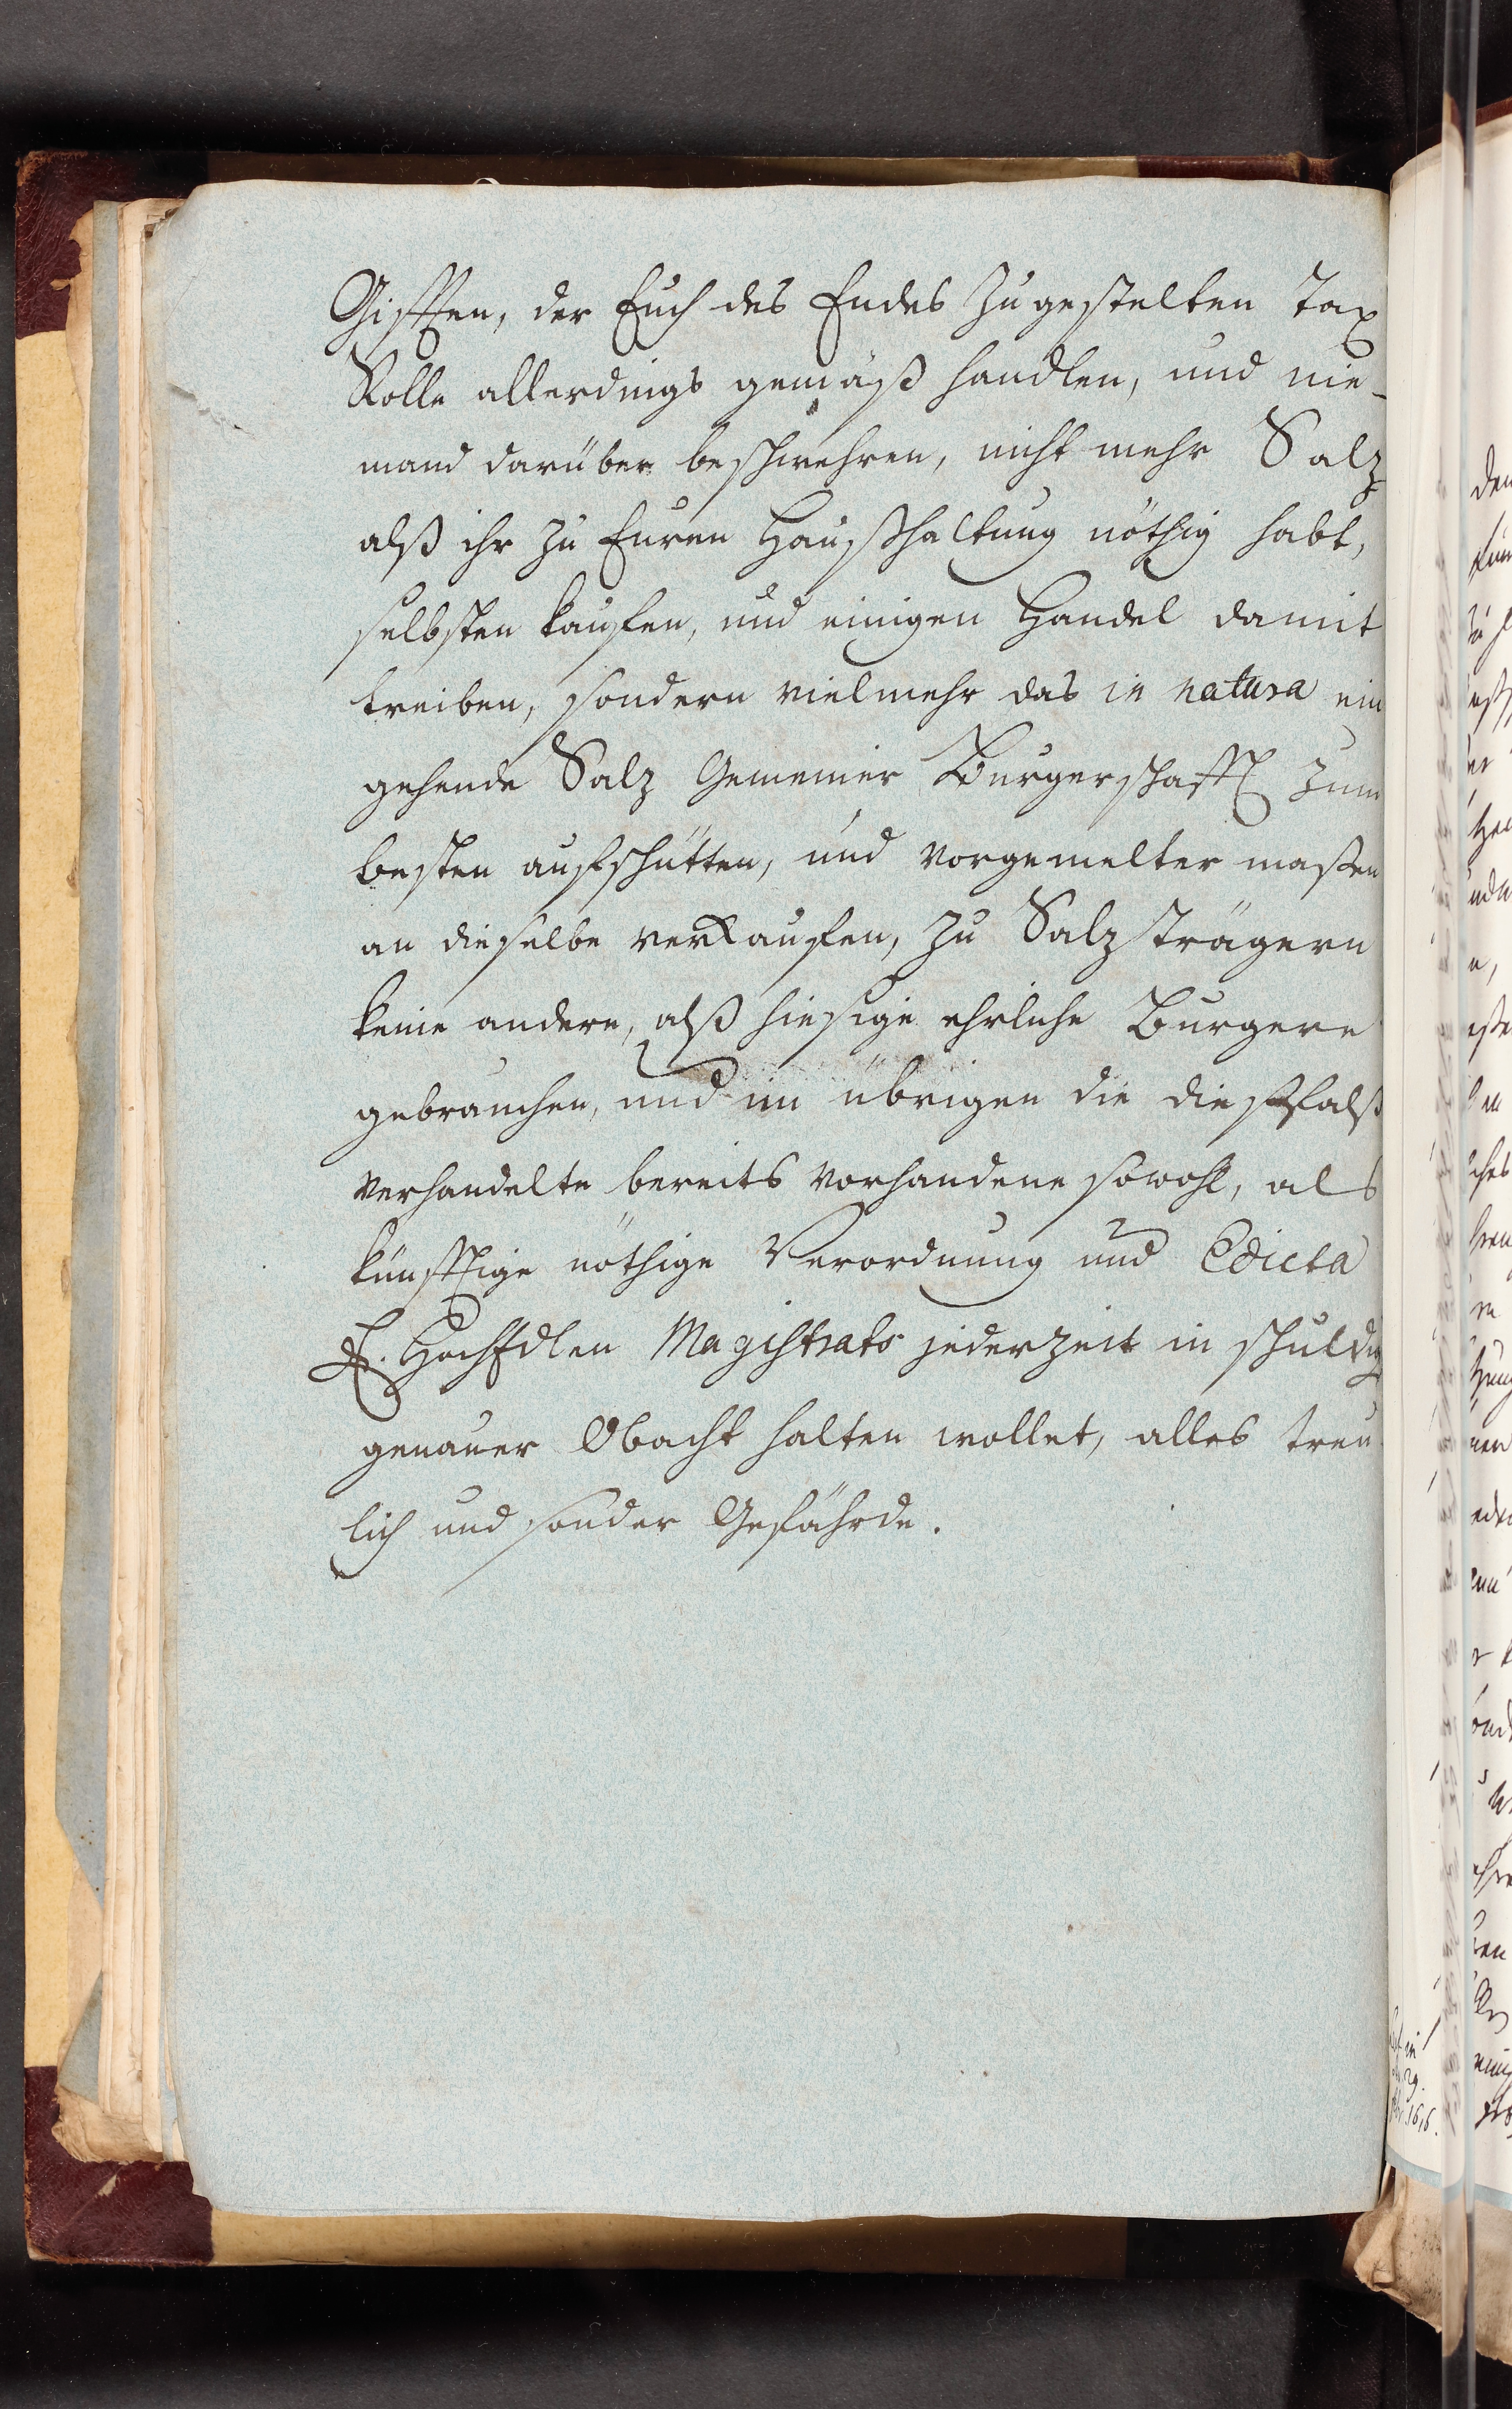 Gifften, der Euch des Endes zugestelten Tax
Rolle allerdings gemäß handlen, und nie-
mand darüber beschwehren, nicht mehr Salz
alß ihr zu Euren Haußhaltung nöthig habt,
selbsten kaufen, und einigen Handel damit
treiben, sondern vielmehr das in natura ein
gehende Salz Gemeiner Burgerschafft zum
besten aufschütten, und vorgemelter maßen
an dieselbe verkaufen, zu Salzträgern
keine andere, alß hiesige ehrliche Burgere
gebrauchen, und im übrigen die dießfalß
verhandelte bereits vorhandene sowohl, als
künfftige nöthige Verordnung und Edicta
E. HochEdlen Magistrats jederzeit in schuldig
genauer Obacht halten wollet, alles treu
lich und sonder Gefährde.